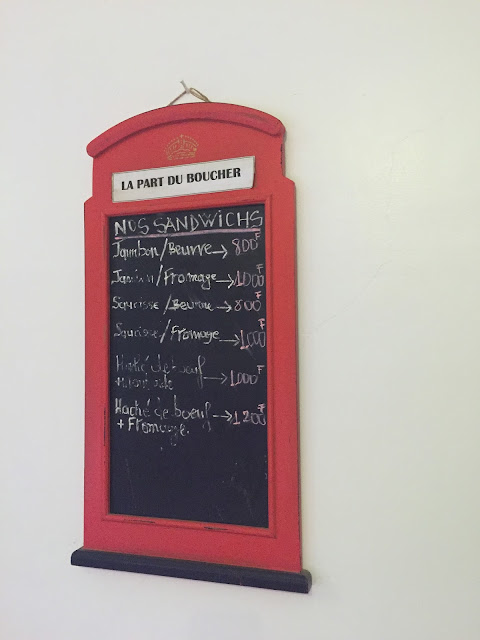 LA PART DU BOUCHER
NOS SANDWICHS
Jambon/Beurre → 800F
Jambon/Fromage → 1000F
Saucisse/Beurre → 800F
Saucisse/Fromage → 1000F
Haché de boeuf → 1000F
Haché de boeuf → 1200F
+ Fromage